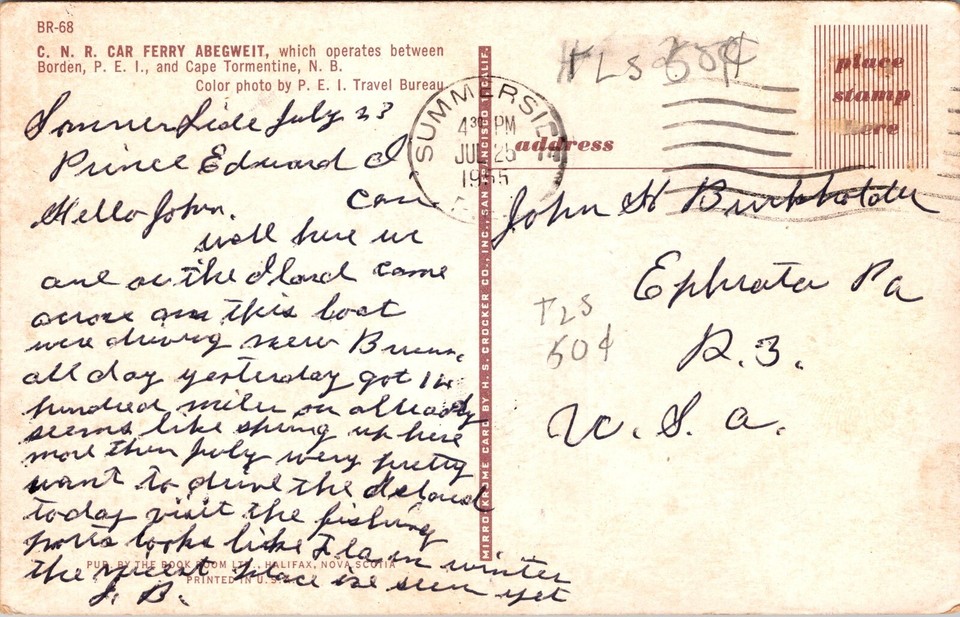 BR-68
C. N. R. CAR FERRY ABEGWEIT, which operates between
Borden, P. E. I., and Cape Tormentine, N. B.
Color photo by P. E. I. Travel Bureau
SummerSide July 23
Prince Edward I
Can
Hello John.
well here we
are on the Island came
across on this boat
were driving new Bruns.
all day yesterday got 14
hundred miles on allready
seems like spring up here
more then July very pretty
want to drive the Island
today visit the fishing
ports looks like Fla in winter
the nicest place ive seen yet
J. B.
PUB. BY THE BOOK ROOM LTD., HALIFAX, NOVA SCOTIA
PRINTED IN U.S.
MIRRO-KROME CARD BY H. S. CROCKER CO., INC., SAN FRANCISCO 1, CALIF.
SUMMERSIDE
4 30 PM
JUL 25
1955
TLS 50¢
place
stamp
here
address
John H Burkholder
Ephrata Pa
R. 3.
U. S. A.
TLS
50¢